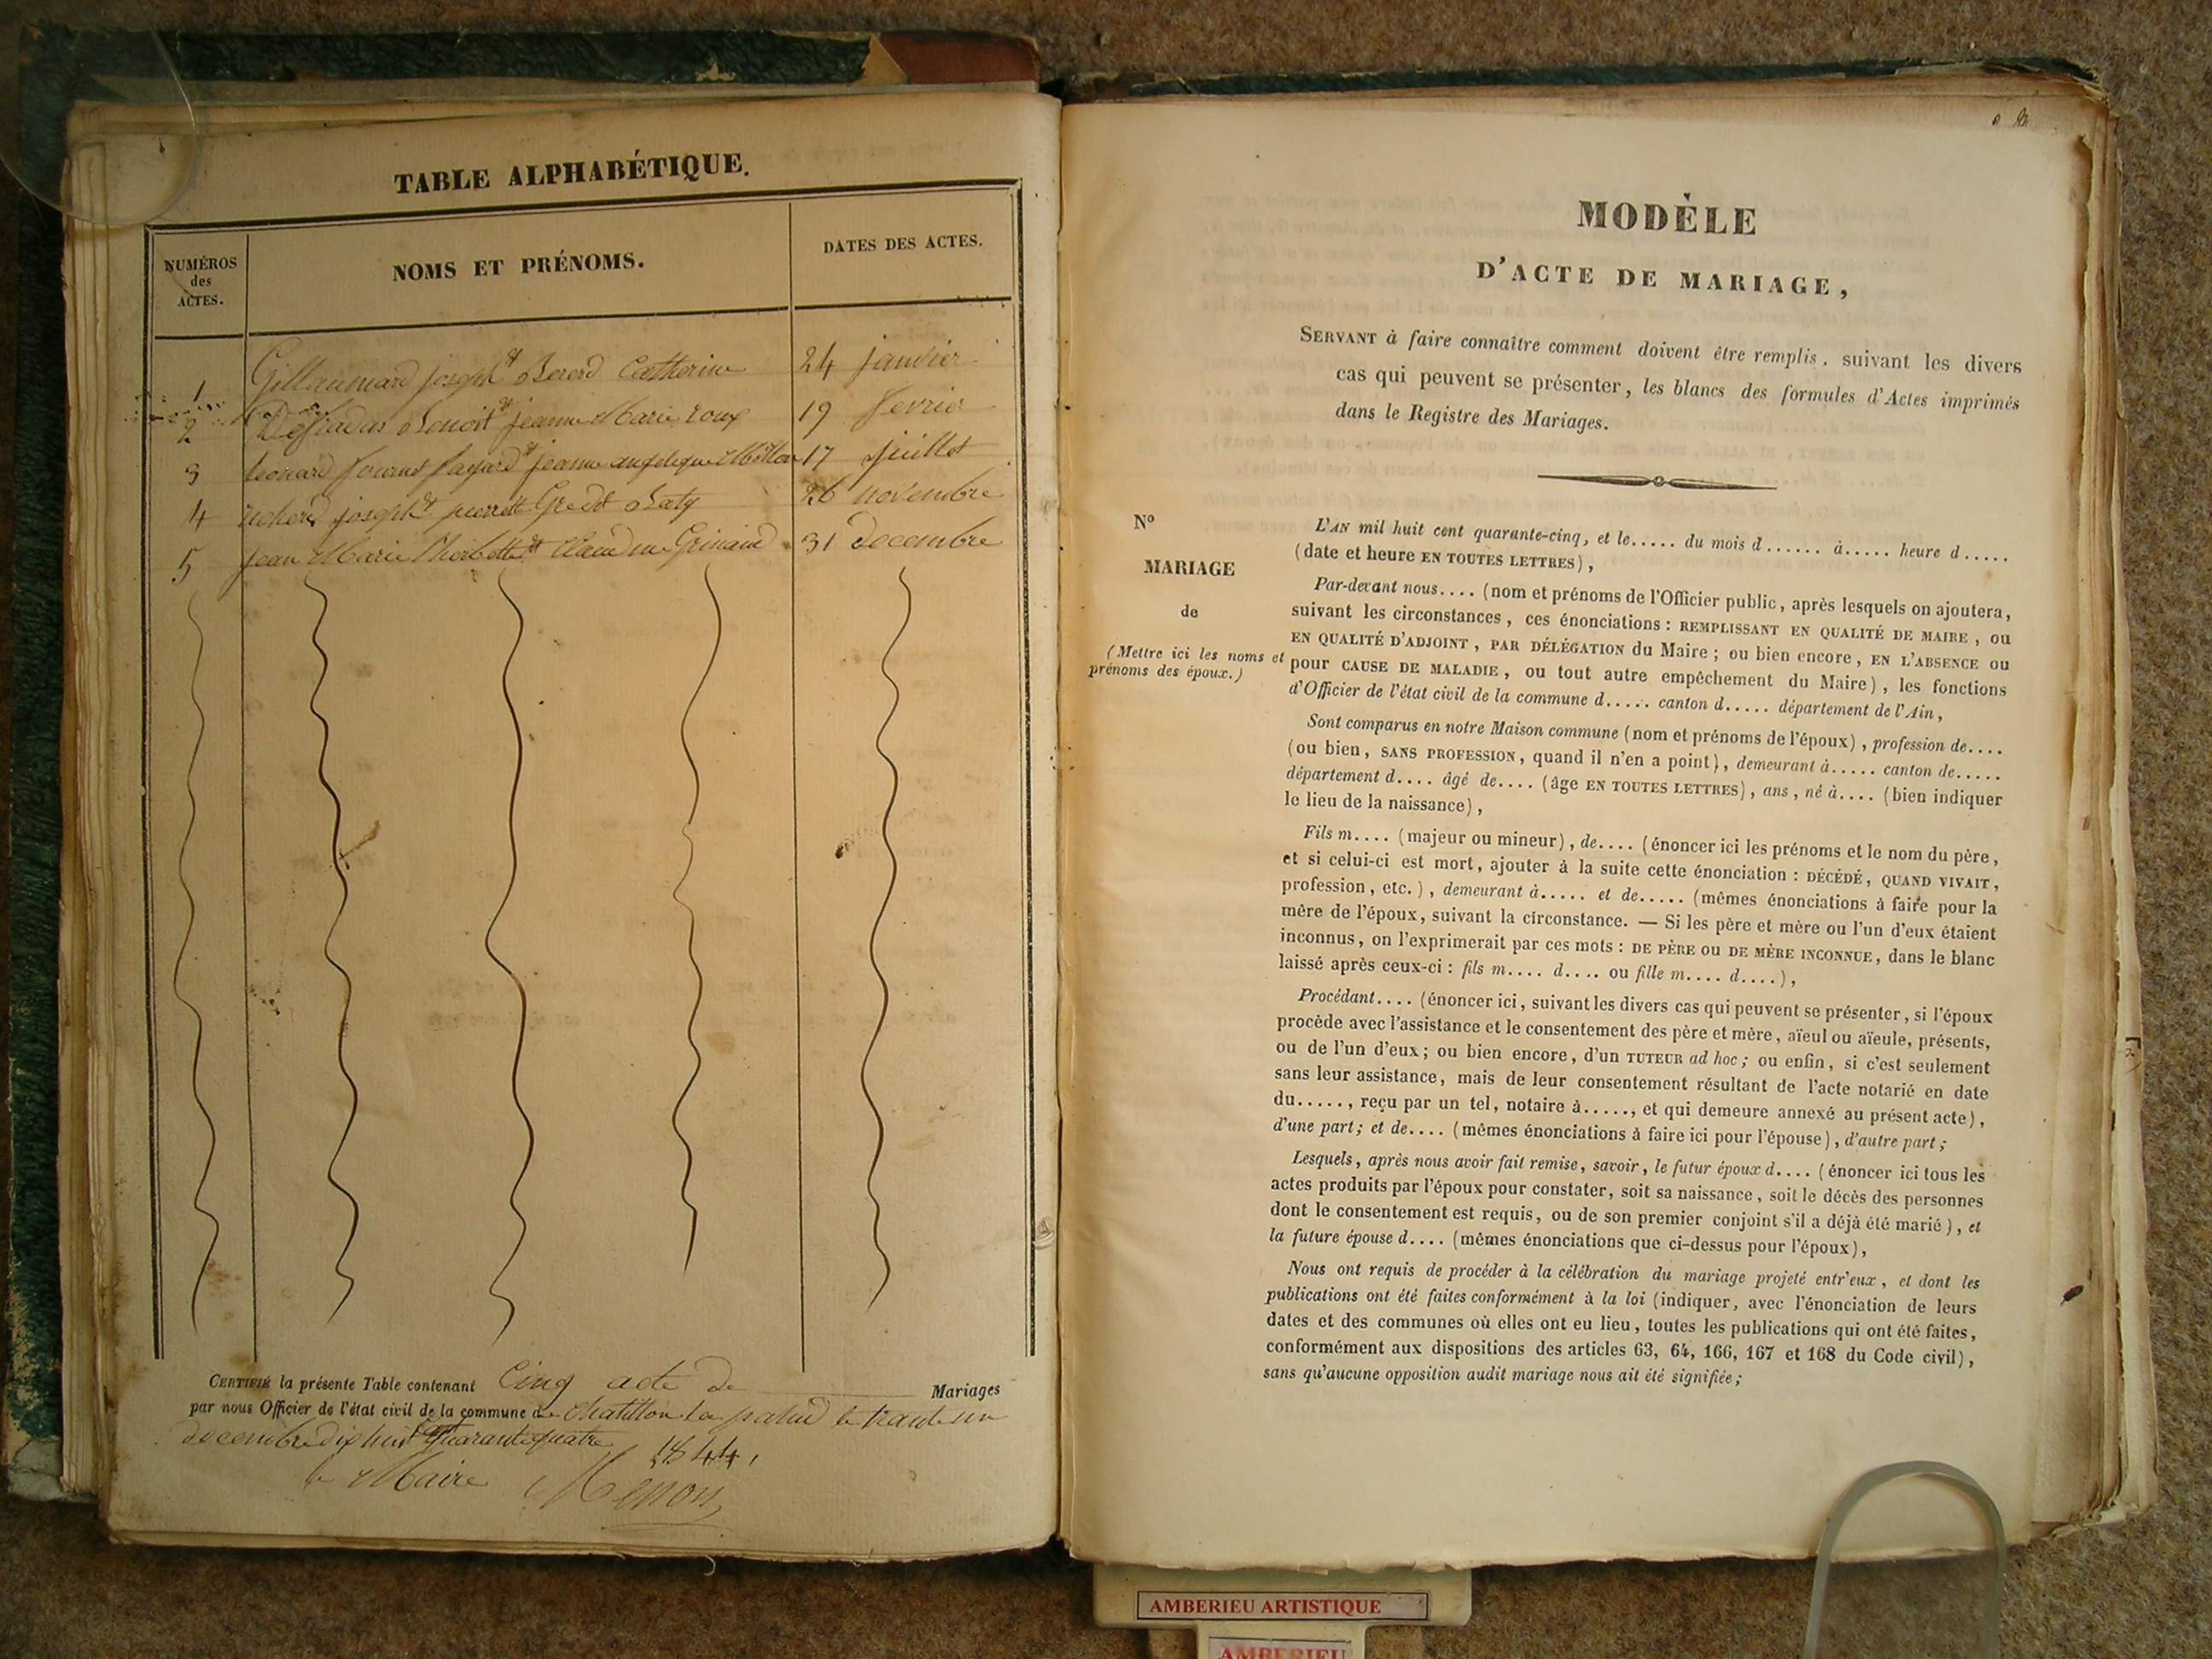 TABLE ALPHABÉTIQUE.
NUMÉROS
des
ACTES.
NOMS ET PRÉNOMS.
DATES DES ACTES.
1 Gillaumard joseph et Bererd Catherine 24 janvier
2 Desfadas Benoit et jeanne Marie roux 19 fevrier
3 leonard et jeanne angelique 17 juillet
4 joseph et pierrette 26 novembre
5 jean Marie et Claudine 31 Decembre
CERTIFIÉ la présente Table contenant Cinq acte de Mariages
par nous Officier de l'état civil de la commune de Chatillon la palud le trante un
decembre dix huit cent quarante quatre 1844,
le Maire
AMBERIEU ARTISTIQUE
AMBERIEU
MODÈLE
D'ACTE DE MARIAGE,
SERVANT à faire connaître comment doivent être remplis, suivant les divers
cas qui peuvent se présenter, les blancs des formules d'Actes imprimés
dans le Registre des Mariages.
N°
MARIAGE
de
(Mettre ici les noms et
prénoms des époux.)
L'AN mil huit cent quarante-cinq, et le..... du mois d...... à..... heure d.....
(date et heure EN TOUTES LETTRES),
Par-devant nous.... (nom et prénoms de l'Officier public, après lesquels on ajoutera,
suivant les circonstances, ces énonciations : REMPLISSANT EN QUALITÉ DE MAIRE, ou
EN QUALITÉ D'ADJOINT, PAR DÉLÉGATION du Maire ; ou bien encore, EN L'ABSENCE ou
pour CAUSE DE MALADIE, ou tout autre empêchement du Maire), les fonctions
d'Officier de l'état civil de la commune d..... canton d..... département de l'Ain,
Sont comparus en notre Maison commune (nom et prénoms de l'époux), profession de....
(ou bien, SANS PROFESSION, quand il n'en a point), demeurant à..... canton de.....
département d.... âgé de.... (âge EN TOUTES LETTRES), ans, né à.... (bien indiquer
le lieu de la naissance),
Fils m.... (majeur ou mineur), de.... (énoncer ici les prénoms et le nom du père,
et si celui-ci est mort, ajouter à la suite cette énonciation : DÉCÉDÉ, QUAND VIVAIT,
profession, etc.), demeurant à..... et de..... (mêmes énonciations à faire pour la
mère de l'époux, suivant la circonstance. — Si les père et mère ou l'un d'eux étaient
inconnus, on l'exprimerait par ces mots : DE PÈRE OU DE MÈRE INCONNUE, dans le blanc
laissé après ceux-ci : fils m.... d.... ou fille m.... d....),
Procédant.... (énoncer ici, suivant les divers cas qui peuvent se présenter, si l'époux
procède avec l'assistance et le consentement des père et mère, aïeul ou aïeule, présents,
ou de l'un d'eux; ou bien encore, d'un TUTEUR ad hoc; ou enfin, si c'est seulement
sans leur assistance, mais de leur consentement résultant de l'acte notarié en date
du....., reçu par un tel, notaire à....., et qui demeure annexé au présent acte),
d'une part; et de.... (mêmes énonciations à faire ici pour l'épouse), d'autre part;
Lesquels, après nous avoir fait remise, savoir, le futur époux d.... (énoncer ici tous les
actes produits par l'époux pour constater, soit sa naissance, soit le décès des personnes
dont le consentement est requis, ou de son premier conjoint s'il a déjà été marié), et
la future épouse d.... (mêmes énonciations que ci-dessus pour l'époux),
Nous ont requis de procéder à la célébration du mariage projeté entr'eux, et dont les
publications ont été faites conformément à la loi (indiquer, avec l'énonciation de leurs
dates et des communes où elles ont eu lieu, toutes les publications qui ont été faites,
conformément aux dispositions des articles 63, 64, 166, 167 et 168 du Code civil),
sans qu'aucune opposition audit mariage nous ait été signifiée;